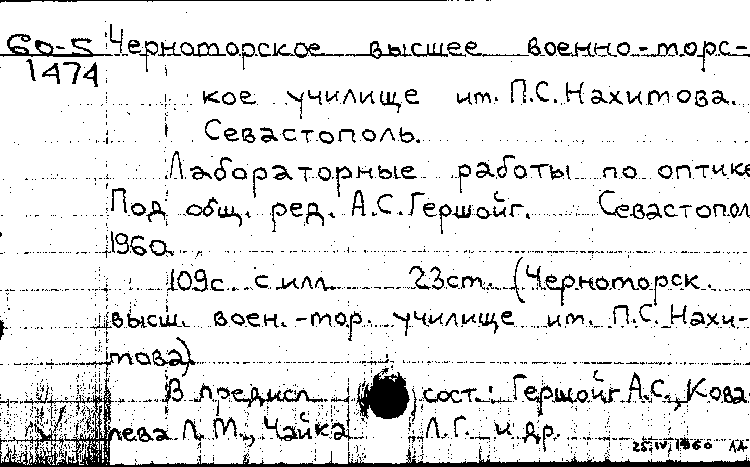 60-5 Черноморское высшее военно-морс-
1474
кое училище им. П.С. Нахимова.
Севастополь.
Лабораторные работы по оптике
Под общ. ред. А.С. Гершойг. Севастопол
1960.
109с. с илл. 23см. (Черноморск.
высш. воен.-мор. училище им. П.С. Нахи-
мова).
В предисл. сост.: Гершойг А.С., Кова
лева Л.М., Чайка Л.Г. и др.
25.IV.1960